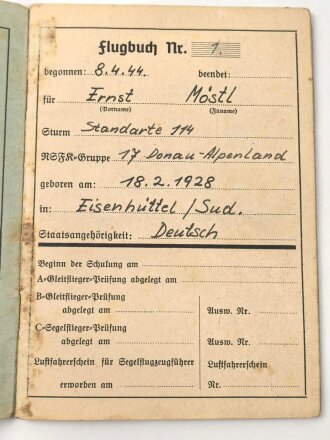 Flugbuch Nr. 1.
begonnen: 8.4.44. beendet:
für Ernst Möstl
(Vorname) (Zuname)
Sturm Standarte 114
NSFK-Gruppe 17 Donau-Alpenland
geboren am: 18.2.1928
in: Eisenhüttel/Sud.
Staatsangehörigkeit: Deutsch
Beginn der Schulung am
A-Gleitflieger-Prüfung abgelegt am
B-Gleitflieger-Prüfung
abgelegt am Ausw. Nr.
C-Segelflieger-Prüfung
abgelegt am Ausw. Nr.
Luftfahrerschein für Segelflugzeugführer Luftfahrerschein
erworben am Nr.